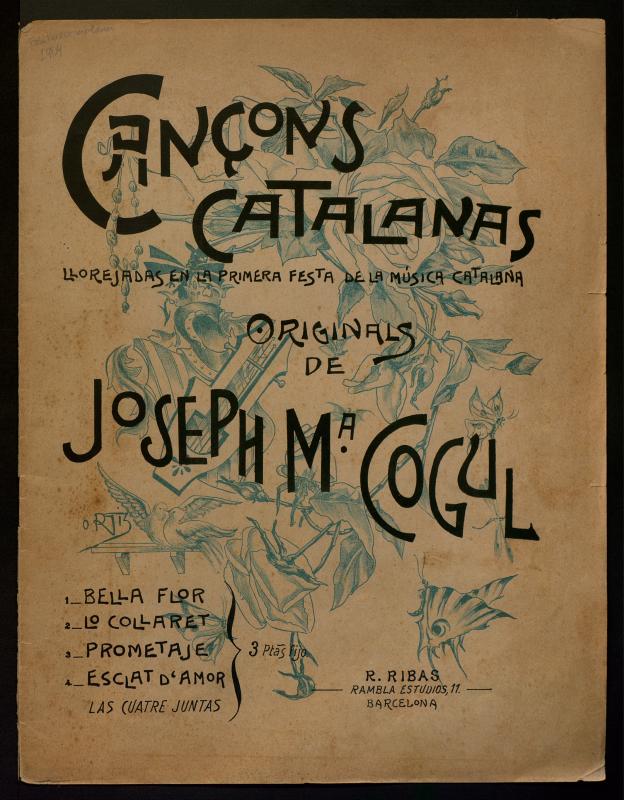 1904
CANÇONS
CATALANAS
LLOREJADAS EN LA PRIMERA FESTA DE LA MÚSICA CATALANA
ORIGINALS
DE
JOSEPH Mª. COGUL
O. RTIS
1_BELLA FLOR
2_LO COLLARET
3_PROMETAJE
4_ESCLAT D'AMOR
LAS CUATRE JUNTAS
3 Ptas fijo
R. RIBAS
RAMBLA ESTUDIOS, 11.
BARCELONA